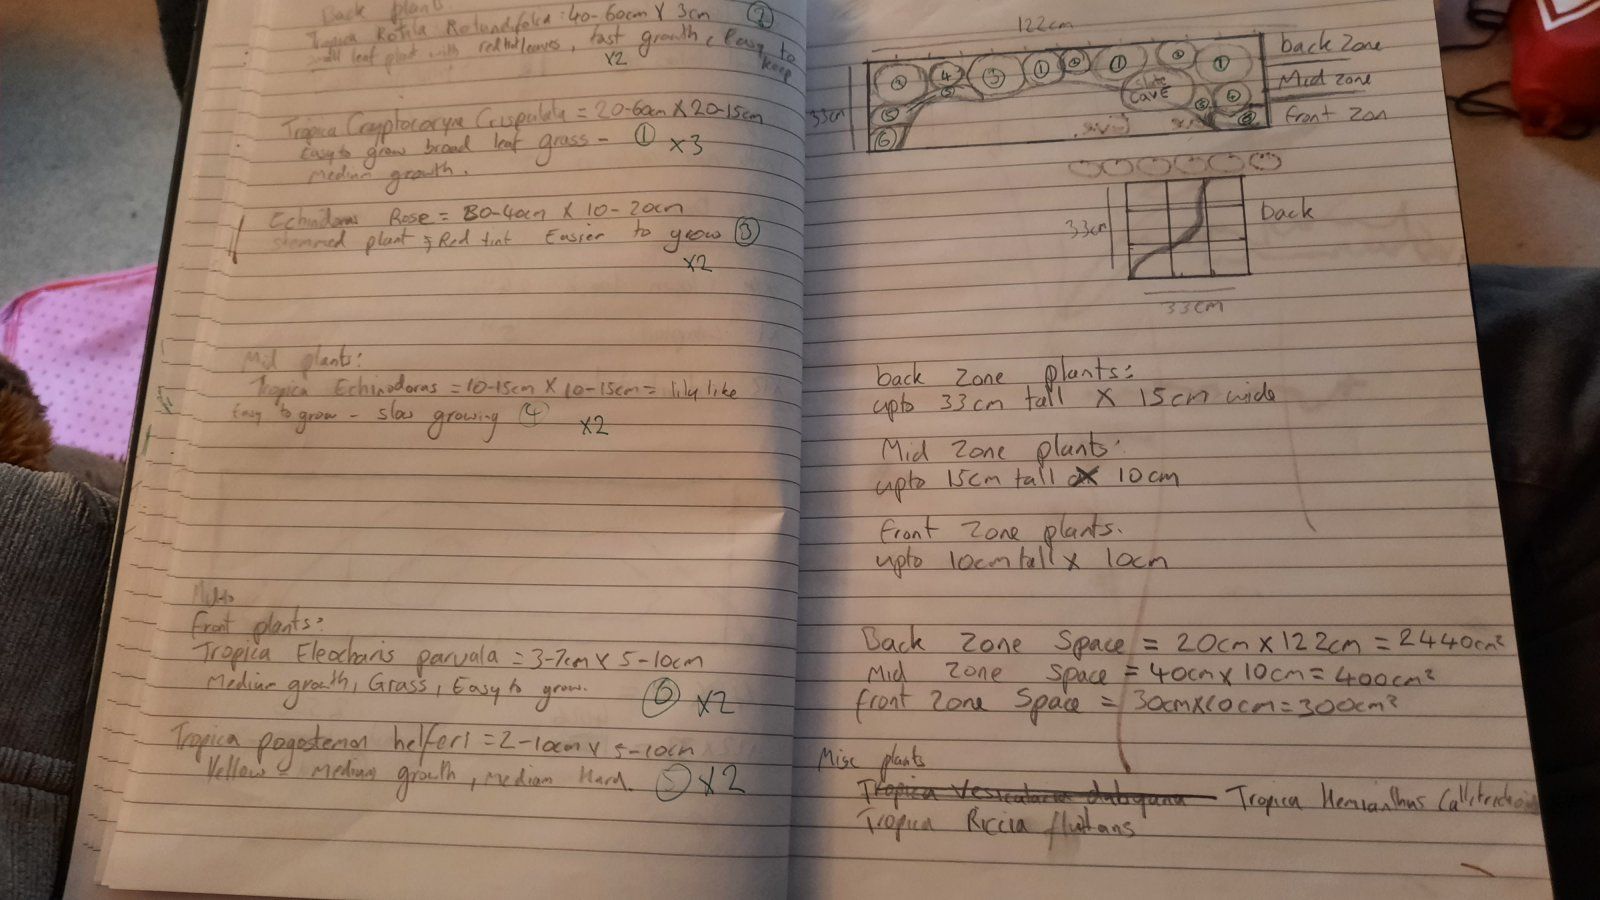 Back plants
Tropica Rotila Rotundfolia: 40-60cm X 3cm ②
small leaf plant with red leaves, fast growth, Easy to keep
x2
Tropica Cryptocoryn Crispulata = 20-60cm X 20-15cm
Easy to grow broad leaf grass - ① x3
Medium growth.
Echindoras Rose = 30-40cm X 10-20cm
stemmed plant & Red tint Easier to grow ③
x2
Mid plants:
Tropica Echinodoras = 10-15cm X 10-15cm = lily like
Easy to grow - slow growing ④ x2
Front plants:
Tropica Eleocharis parvala = 3-7cm X 5-10cm
Medium growth, Grass, Easy to grow. ⑥ x2
Tropica pogostemon helferi = 2-10cm x 5-10cm
Yellow - medium growth, Medium Hard. ⑤ x2
122cm
back Zone
Mid zone
front Zon
33cm
③ ④ ③ ① ② ① ② ①
Cave
⑤ ⑤ ④
⑥
33cm
back
33cm
back Zone plants:
upto 33cm tall X 15cm wide
Mid Zone plants:
upto 15cm tall X 10cm
front Zone plants.
upto 10cm tall x 10cm
Back Zone Space = 20cm x 122cm = 2440cm²
Mid Zone Space = 40cm x 10cm = 400cm²
front Zone Space = 30cm x 10cm = 300cm²
Misc plants
Tropica Vesicularia dubyana Tropica Hemianthus Callitrichoi
Tropica Riccia fluitans